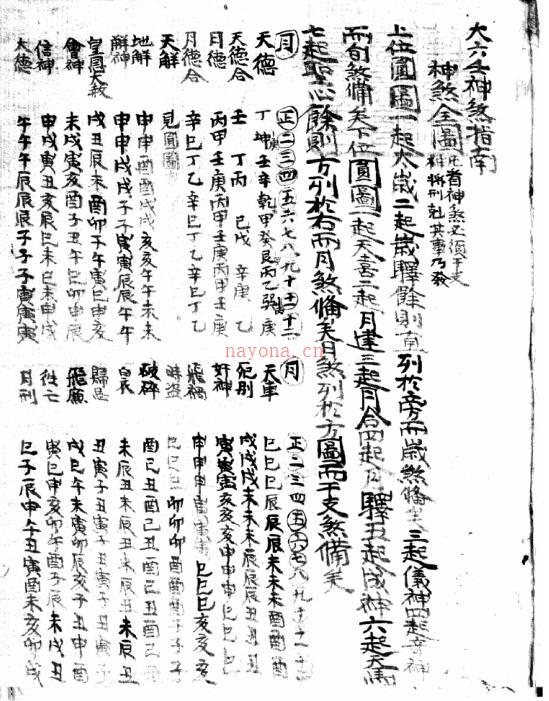 大六壬神煞指南
神煞全圖 凡看神煞必須干支神將刑尅其事乃發
上位圓圖一起太歲二起歲驛餘則直列於旁而歲煞備矣三起儀神四起奇神
而旬煞備矣下位圓圖一起天喜二起月建三起月合四起月驛五起成神六起天馬
七起聖心餘則方列於右而月煞備矣月煞列於方圖而干支煞備矣
月 正二三四五六七八九十十一十二
天德 丁坤壬辛乾甲癸艮丙乙巽庚
天德合 壬 丁丙 己戊 辛庚 乙
月德 丙甲壬庚丙甲壬庚丙甲壬庚
月德合 辛己丁乙辛己丁乙辛己丁乙
天解 見圓圖
地解 申申酉酉戌戌亥亥午午未未
解神 申申戌戌子子寅寅辰辰午午
皇恩大赦 戌丑辰未酉卯子午寅巳申亥
會神 未戌寅亥酉子丑午巳卯申辰
信神 申戌寅丑亥辰巳未巳未申戌
大德 午午午辰辰辰子子子寅寅寅
月 正二三四五六七八九十十一十二
天車 巳巳巳辰辰辰未未未酉酉酉
死別 戌戌戌未未未辰辰辰丑丑丑
奸神 寅寅寅亥亥亥申申申巳巳巳
飛禍 申申申寅寅寅巳巳巳亥亥亥
時盜 巳巳巳卯卯卯酉酉酉子子子
破碎 酉巳丑酉巳丑酉巳丑酉巳丑
白衣 未辰丑未辰丑未辰丑未辰丑
歸忌 丑寅子丑寅子丑寅子丑寅子
飛廉 戌巳午未寅卯辰亥子丑申酉
往亡 寅巳申亥卯午酉子辰未戌丑
月刑 巳子辰申午丑寅酉未亥卯戌
nayona.cn